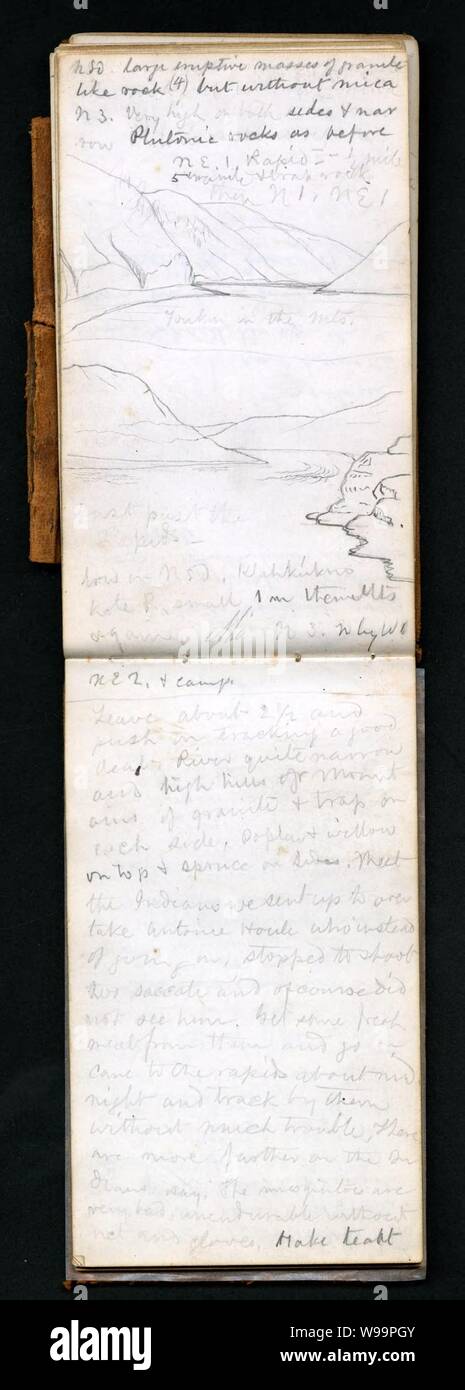 N50. large eruptive masses of granite
like rock (4) but without mica
N 3. Very high on both sides & nar
row Plutonic rocks as before
N E. 1, Rapids - ½ mile
5 granite & trap rock
then N 1, N E 1
Yukon in the Mts.
Just past the
Rapids -
N 3. N by W
N E 2, & camp.
Leave about 2½ and
push on tracking a good
deal. River quite narrow
and high hills or Mount
ains of granite & trap on
each side, Poplar & willow
on top & spruce on sides. Meet
the Indians we sent up to over
take Antoine Houle who instead
of going on, stopped to shoot
and of course did
not see him. Get some fresh
meat from them and go on
came to the rapids about mid
night and track by them
without much trouble, There
are more farther on the In
dians say. The mosquitoes are
very bad, unendurable without
net and gloves. Make tea at
alamy
a
alamy
Image ID: W99PGY
www.alamy.com